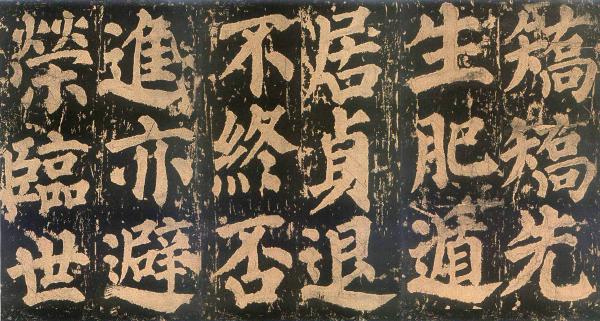 矯矯先
生肥遁
居貞退
不終否
進亦避
榮臨世